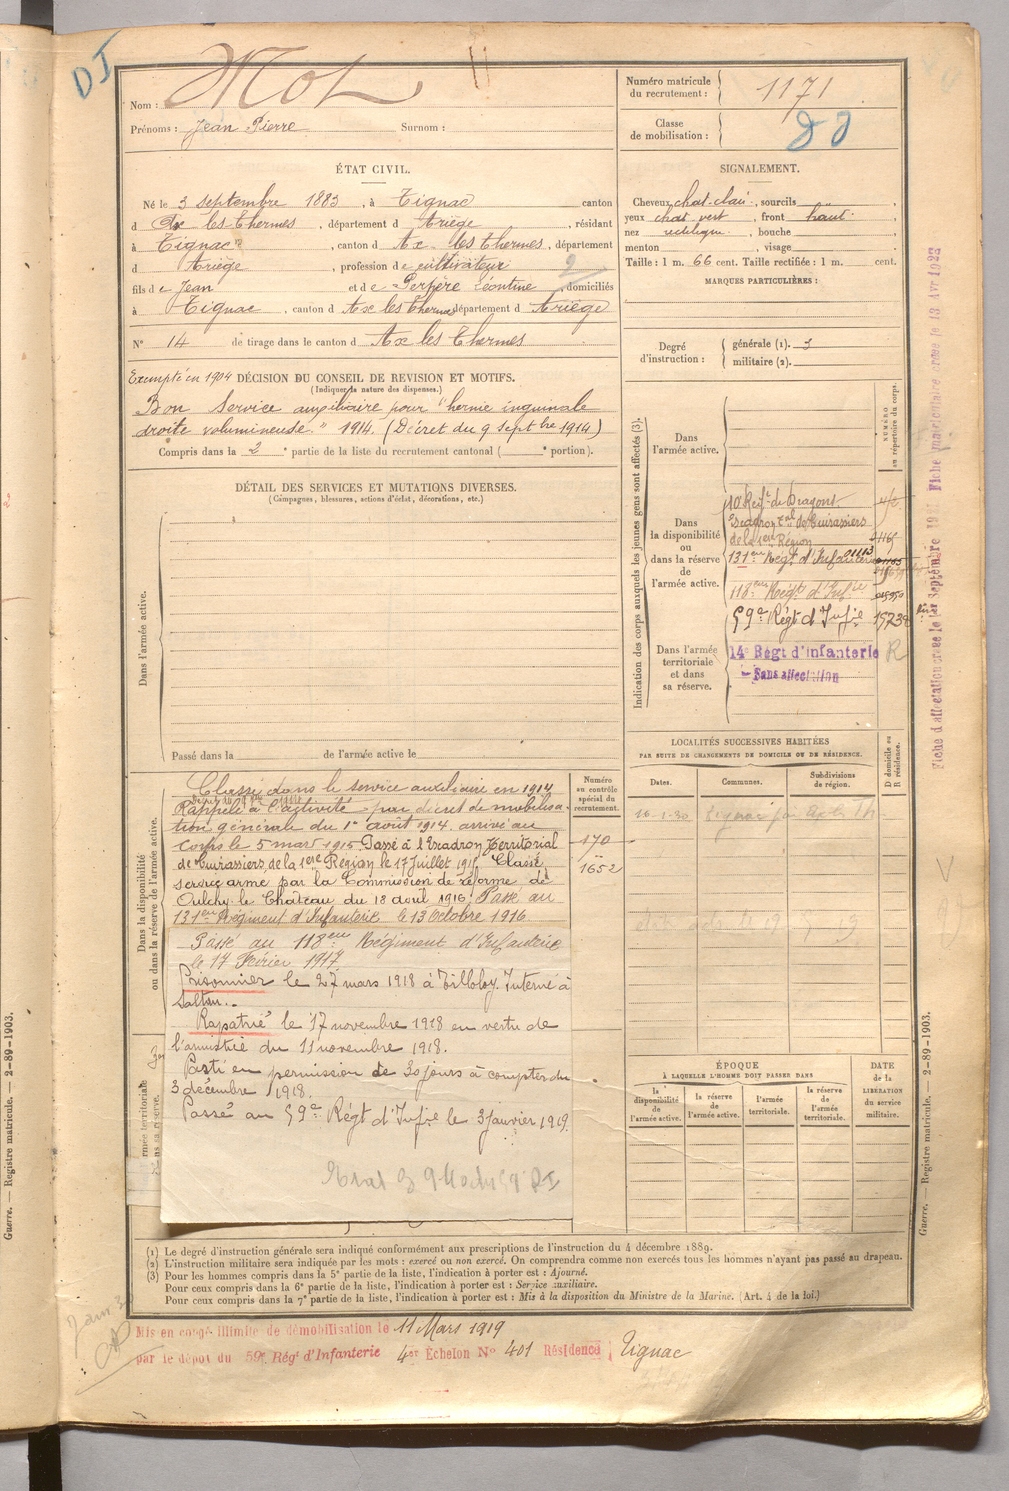 DI
Nom : Mot
Prénoms : Jean Pierre Surnom :
Numéro matricule du recrutement : 1171
Classe de mobilisation :
ÉTAT CIVIL.
Né le 3 septembre 1883, à Tignac canton
d Ax les Thermes, département d Ariège, résidant
à Tignac, canton d Ax les Thermes, département
d Ariège, profession de cultivateur
fils de Jean et de Perpère Léontine, domiciliés
à Tignac, canton d Ax les Thermes département d Ariège
N° 14 de tirage dans le canton d Ax les Thermes
SIGNALEMENT.
Cheveux chat. clair, sourcils
yeux chat vert, front haut
nez rectiligne, bouche
menton, visage
Taille : 1 m. 66 cent. Taille rectifiée : 1 m. cent.
MARQUES PARTICULIÈRES :
Degré d'instruction : générale (1). 3
militaire (2).
Exempté en 1904 DÉCISION DU CONSEIL DE REVISION ET MOTIFS.
(Indiquer la nature des dispenses.)
Bon Service auxiliaire pour "hernie inguinale
droite volumineuse" 1914. (Décret du 9 septbre 1914)
Compris dans la 2e partie de la liste du recrutement cantonal ( e portion).
DÉTAIL DES SERVICES ET MUTATIONS DIVERSES.
(Campagnes, blessures, actions d'éclat, décorations, etc.)
Dans l'armée active.
Passé dans la de l'armée active le
Indication des corps auxquels les jeunes gens sont affectés (3).
NUMÉRO au répertoire du corps.
Dans l'armée active.
Dans la disponibilité ou dans la réserve de l'armée active.
10 Regt de Dragons
Escadron Tal de Cuirassiers
de la 1ere Région
131eme Régt d'Infanterie
118eme Régt d'Infrie
Dans l'armée territoriale et dans sa réserve.
59e Régt d'Infie
14e Régt d'infanterie
Sans affectation
R
Fiche d'affectation créée le 1er Septembre Fiche matriculaire créée le 13 Avr 1922
LOCALITÉS SUCCESSIVES HABITÉES
PAR SUITE DE CHANGEMENTS DE DOMICILE OU DE RÉSIDENCE.
D domicile ou R résidence.
Dates. Communes. Subdivisions de région.
Numéro au contrôle spécial du recrutement.
170
1652
Dans la disponibilité ou dans la réserve de l'armée active.
Classé dans le service auxiliaire en 1914
Rappelé à l'activité par décret de mobilisa-
tion générale du 1er août 1914. arrivé au
Corps le 5 mars 1915 Passé à l'Escadron Territorial
de Cuirassiers de la 1ere Région le 17 Juillet 1915 Classé
service armé par la Commission de réforme de
Oulchy le Château du 18 avril 1916. Passé au
131eme Régiment d'Infanterie le 13 Octobre 1916
Passé au 118eme Régiment d'Infanterie
le 17 Février 1917.
Prisonnier le 27 mars 1918 à Tilloloy. Interné à
Rapatrié le 17 novembre 1918 en vertu de
l'armistie du 11 novembre 1918.
Parti en permission de 30 jours à compter du
3 décembre 1918.
Passé au 59e Régt d'Infie le 3 janvier 1919.
ÉPOQUE
À LAQUELLE L'HOMME DOIT PASSER DANS
la disponibilité de l'armée active.
la réserve de l'armée active.
l'armée territoriale.
la réserve de l'armée territoriale.
DATE de la LIBÉRATION du service militaire.
(1) Le degré d'instruction générale sera indiqué conformément aux prescriptions de l'instruction du 4 décembre 1889.
(2) L'instruction militaire sera indiquée par les mots : exercé ou non exercé. On comprendra comme non exercés tous les hommes n'ayant pas passé au drapeau.
(3) Pour les hommes compris dans la 5e partie de la liste, l'indication à porter est : Ajourné.
Pour ceux compris dans la 6e partie de la liste, l'indication à porter est : Service auxiliaire.
Pour ceux compris dans la 7e partie de la liste, l'indication à porter est : Mis à la disposition du Ministre de la Marine. (Art. 4 de la loi.)
Mis en congé illimité de démobilisation le 11 Mars 1919
par le dépôt du 59e Rég' d'Infanterie 4er Échelon N° 401 Résidence Tignac
Guerre. — Registre matricule. — 2-89-1903.
Guerre. — Registre matricule. — 2-89-1903.